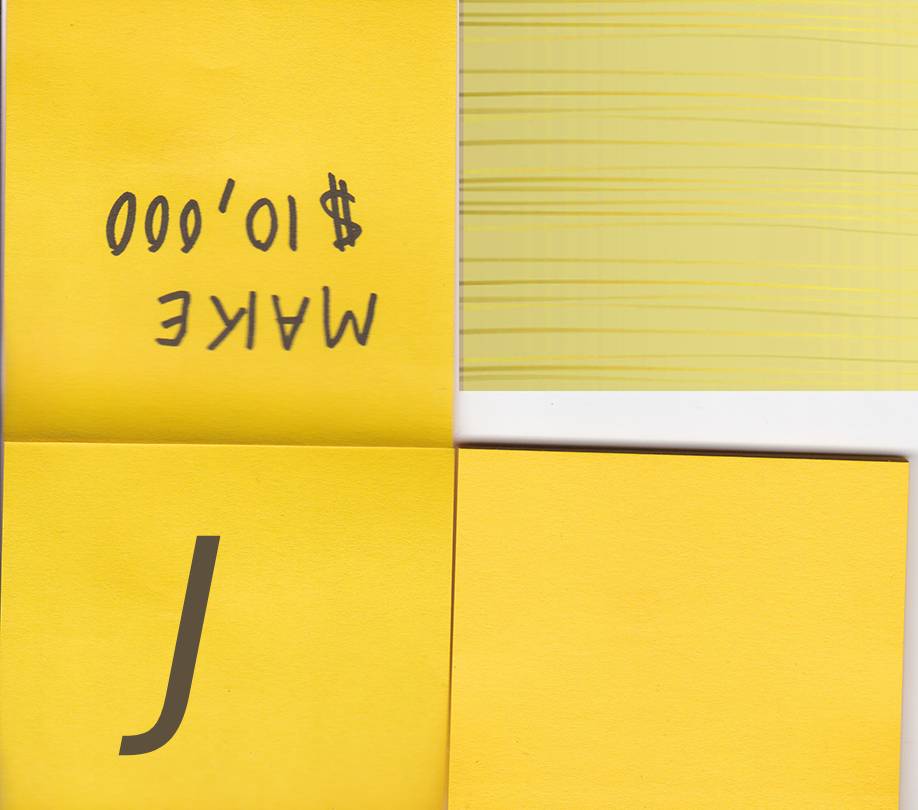 MAKE
$10,000
J